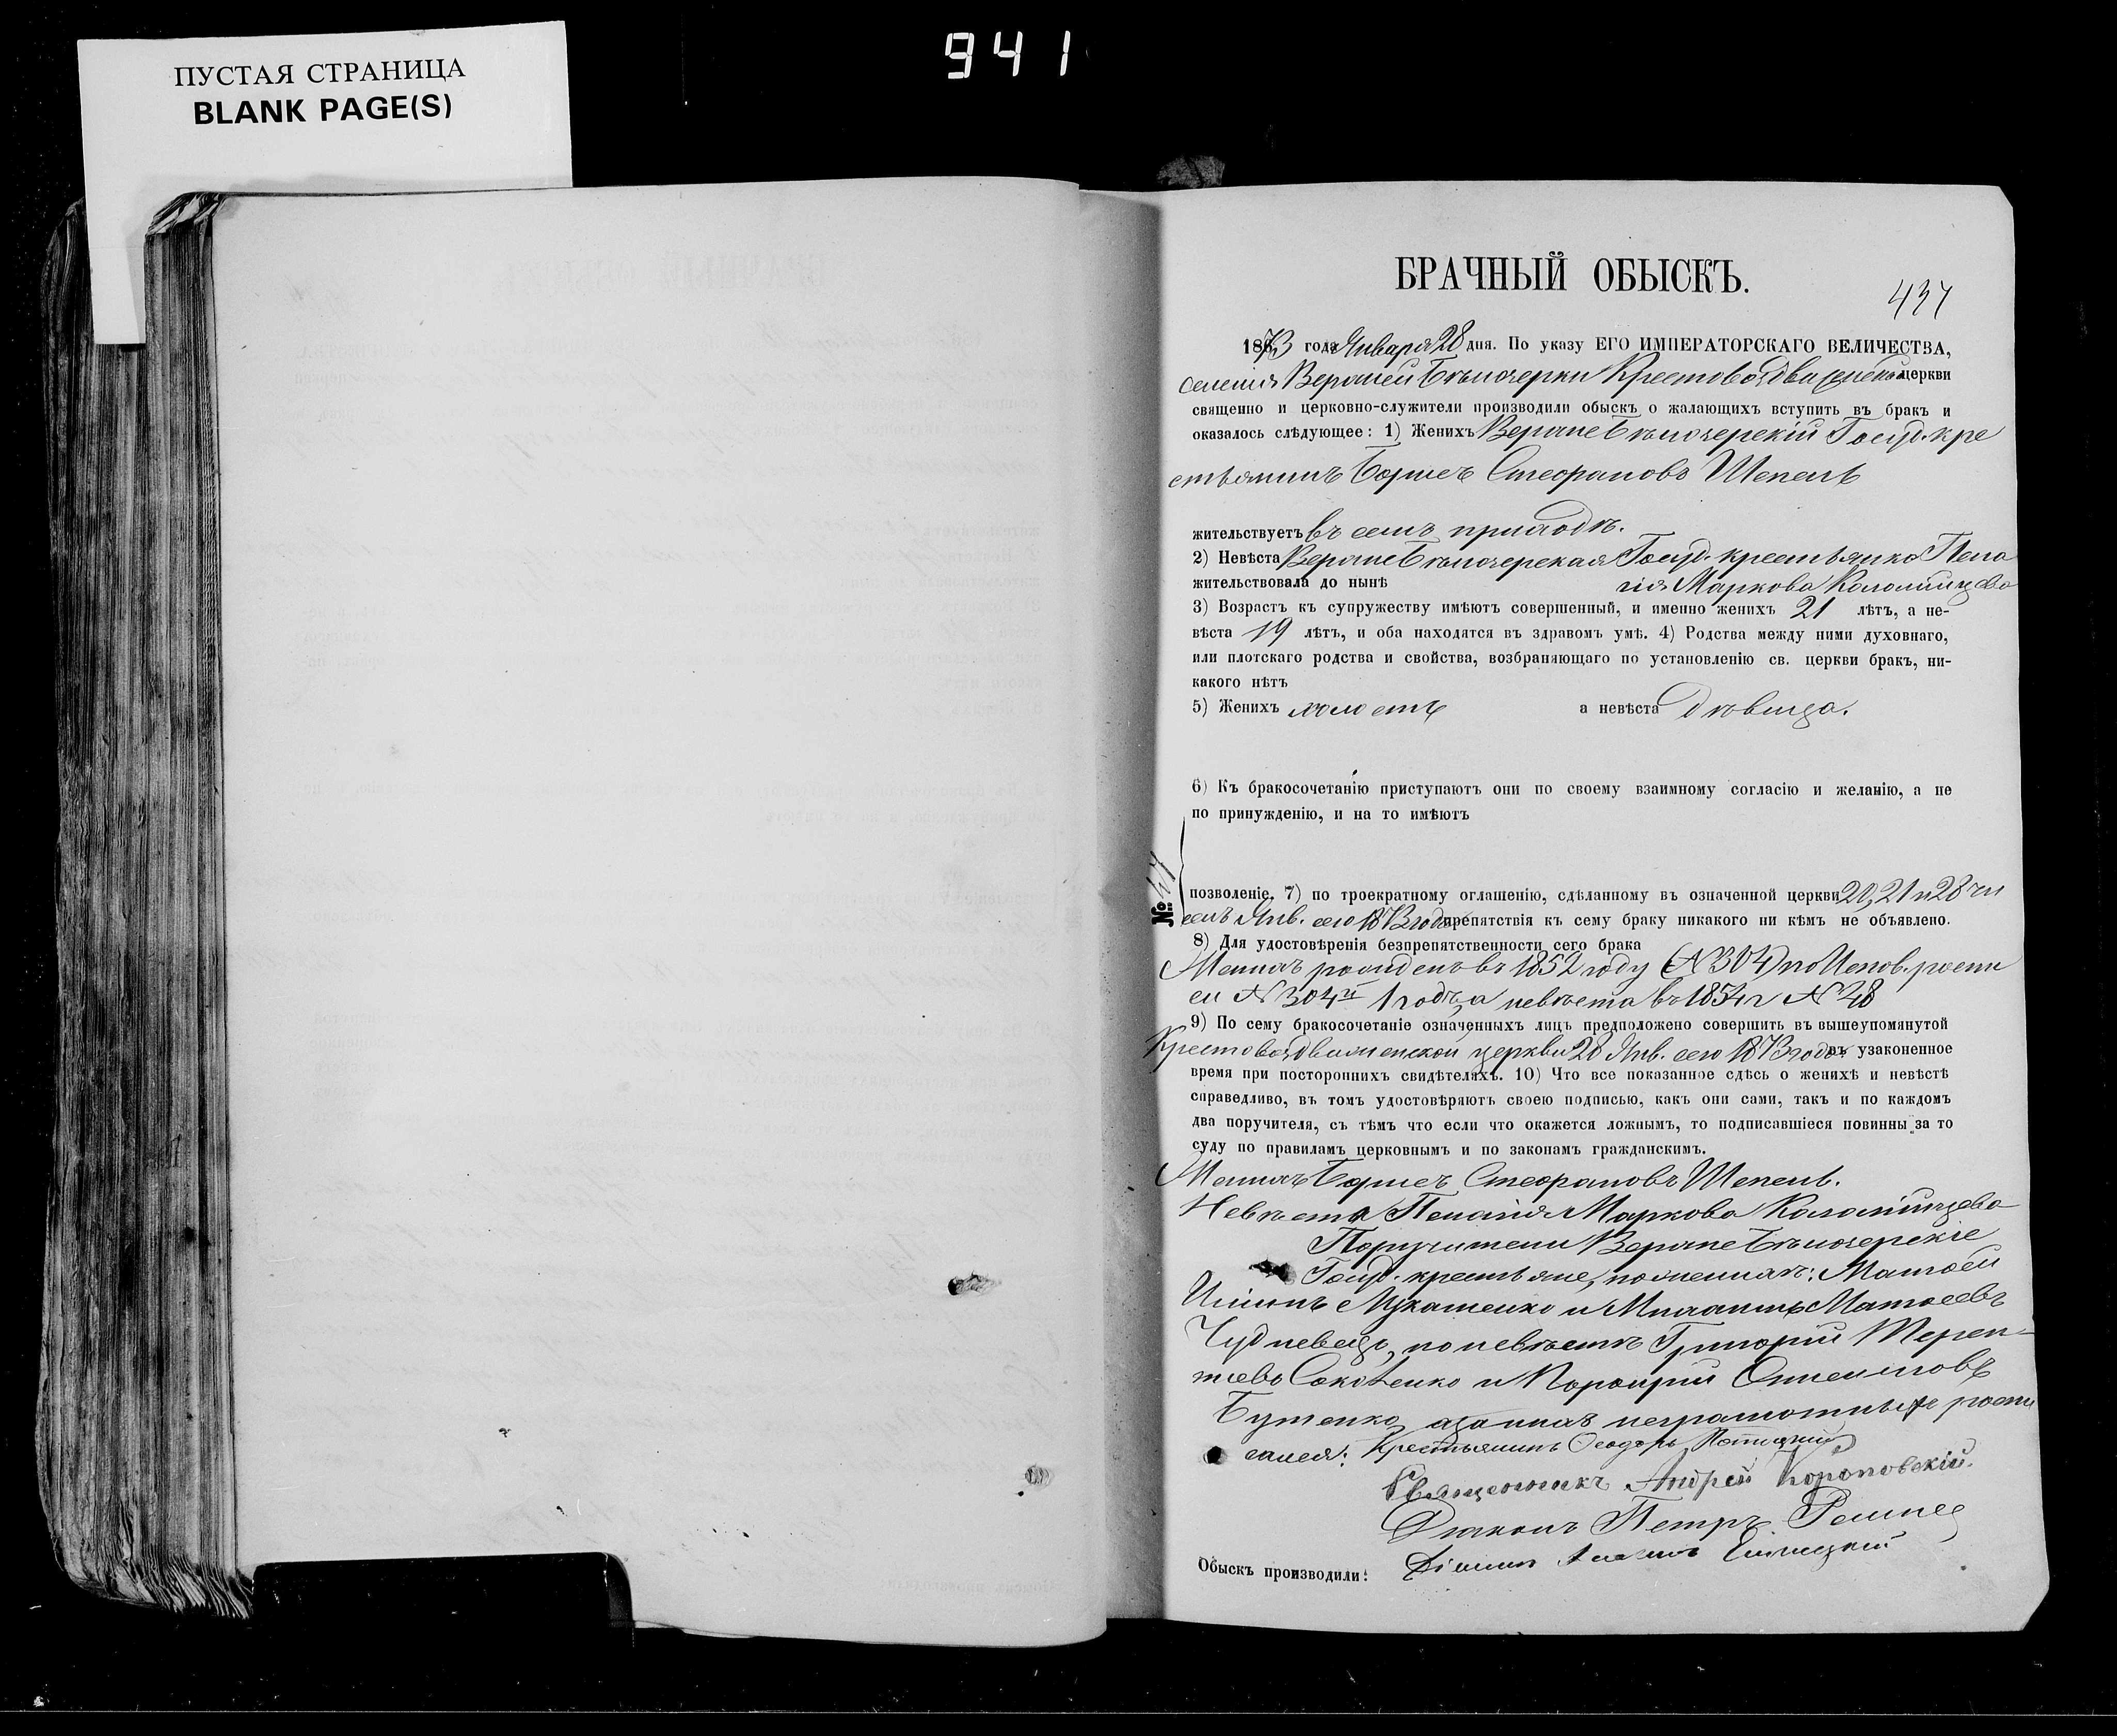 ПУСТАЯ СТРАНИЦА
BLANK PAGE(S)
941
БРАЧНЫЙ ОБЫСКЪ.
437
1873 года Января 28 дня. По указу ЕГО ИМПЕРАТОРСКАГО ВЕЛИЧЕСТВА,
селенія Верхней Бѣлозерки Крестовоздвиженской церкви
священно и церковно-служители производили обыскъ о жалающихъ вступить въ бракъ и
оказалось слѣдующее: 1) Женихъ Верхнебѣлозерскій Госуд. кре
стьянинъ Стефановъ Шепель
жительствуетъ въ семъ приходѣ.
2) Невѣста Верхнебѣлозерская Госуд. крестьянка Пела
жительствовала до нынѣ гія Маркова Коломійцева
3) Возрастъ къ супружеству имѣютъ совершенный, и именно женихъ 21 лѣтъ, а не-
вѣста 19 лѣтъ, и оба находятся въ здравомъ умѣ. 4) Родства между ними духовнаго,
или плотскаго родства и свойства, возбраняющаго по установленію св. церкви бракъ, ни-
какого нѣтъ
5) Женихъ холостъ а невѣста дѣвица.
6) Къ бракосочетанію приступаютъ они по своему взаимному согласію и желанію, а не
по принужденію, и на то имѣютъ
№
позволеніе. 7) по троекратному оглашенію, сдѣланному въ означенной церкви 20, 21 и 28 чи
слъ Янв. сего 1873 года препятствія къ сему браку никакого ни кѣмъ не объявлено.
8) Для удостовѣренія безпрепятственности сего брака
Женихъ рожденъ въ 1852 году (N 304) по Испов. росп
си N 304й 1 годъ, а невѣста въ 1854 г N 48
9) По сему бракосочетаніе означенныхъ лицъ предположено совершить въ вышеупомянутой
Крестовоздвиженской церкви 28 Янв. сего 1873 года въ узаконенное
время при постороннихъ свидѣтеляхъ. 10) Что все показанное сдѣсь о женихѣ и невѣстѣ
справедливо, въ томъ удостовѣряютъ своею подписью, какъ они сами, такъ и по каждомъ
два поручителя, съ тѣмъ что если что окажется ложнымъ, то подписавшіеся повинны за то
суду по правиламъ церковнымъ и по законамъ гражданскимъ.
Женихъ Стефановъ Шепель.
Невѣста Пелагія Маркова Коломійцева
Поручители Верхнебѣлозерскіе
Госуд. крестьяне, по женихѣ: Матфей
Лукашенко и Матфеевъ
Чудневецъ, по невѣстѣ Григорій Терен-
тіевъ и Порфирій
Бутенко, а за нихъ неграмотныхъ роспи
сался: Крестьянинъ Ѳеодоръ
Священникъ Андрей Короповскій.
Діаконъ Петръ
Обыскъ производили: